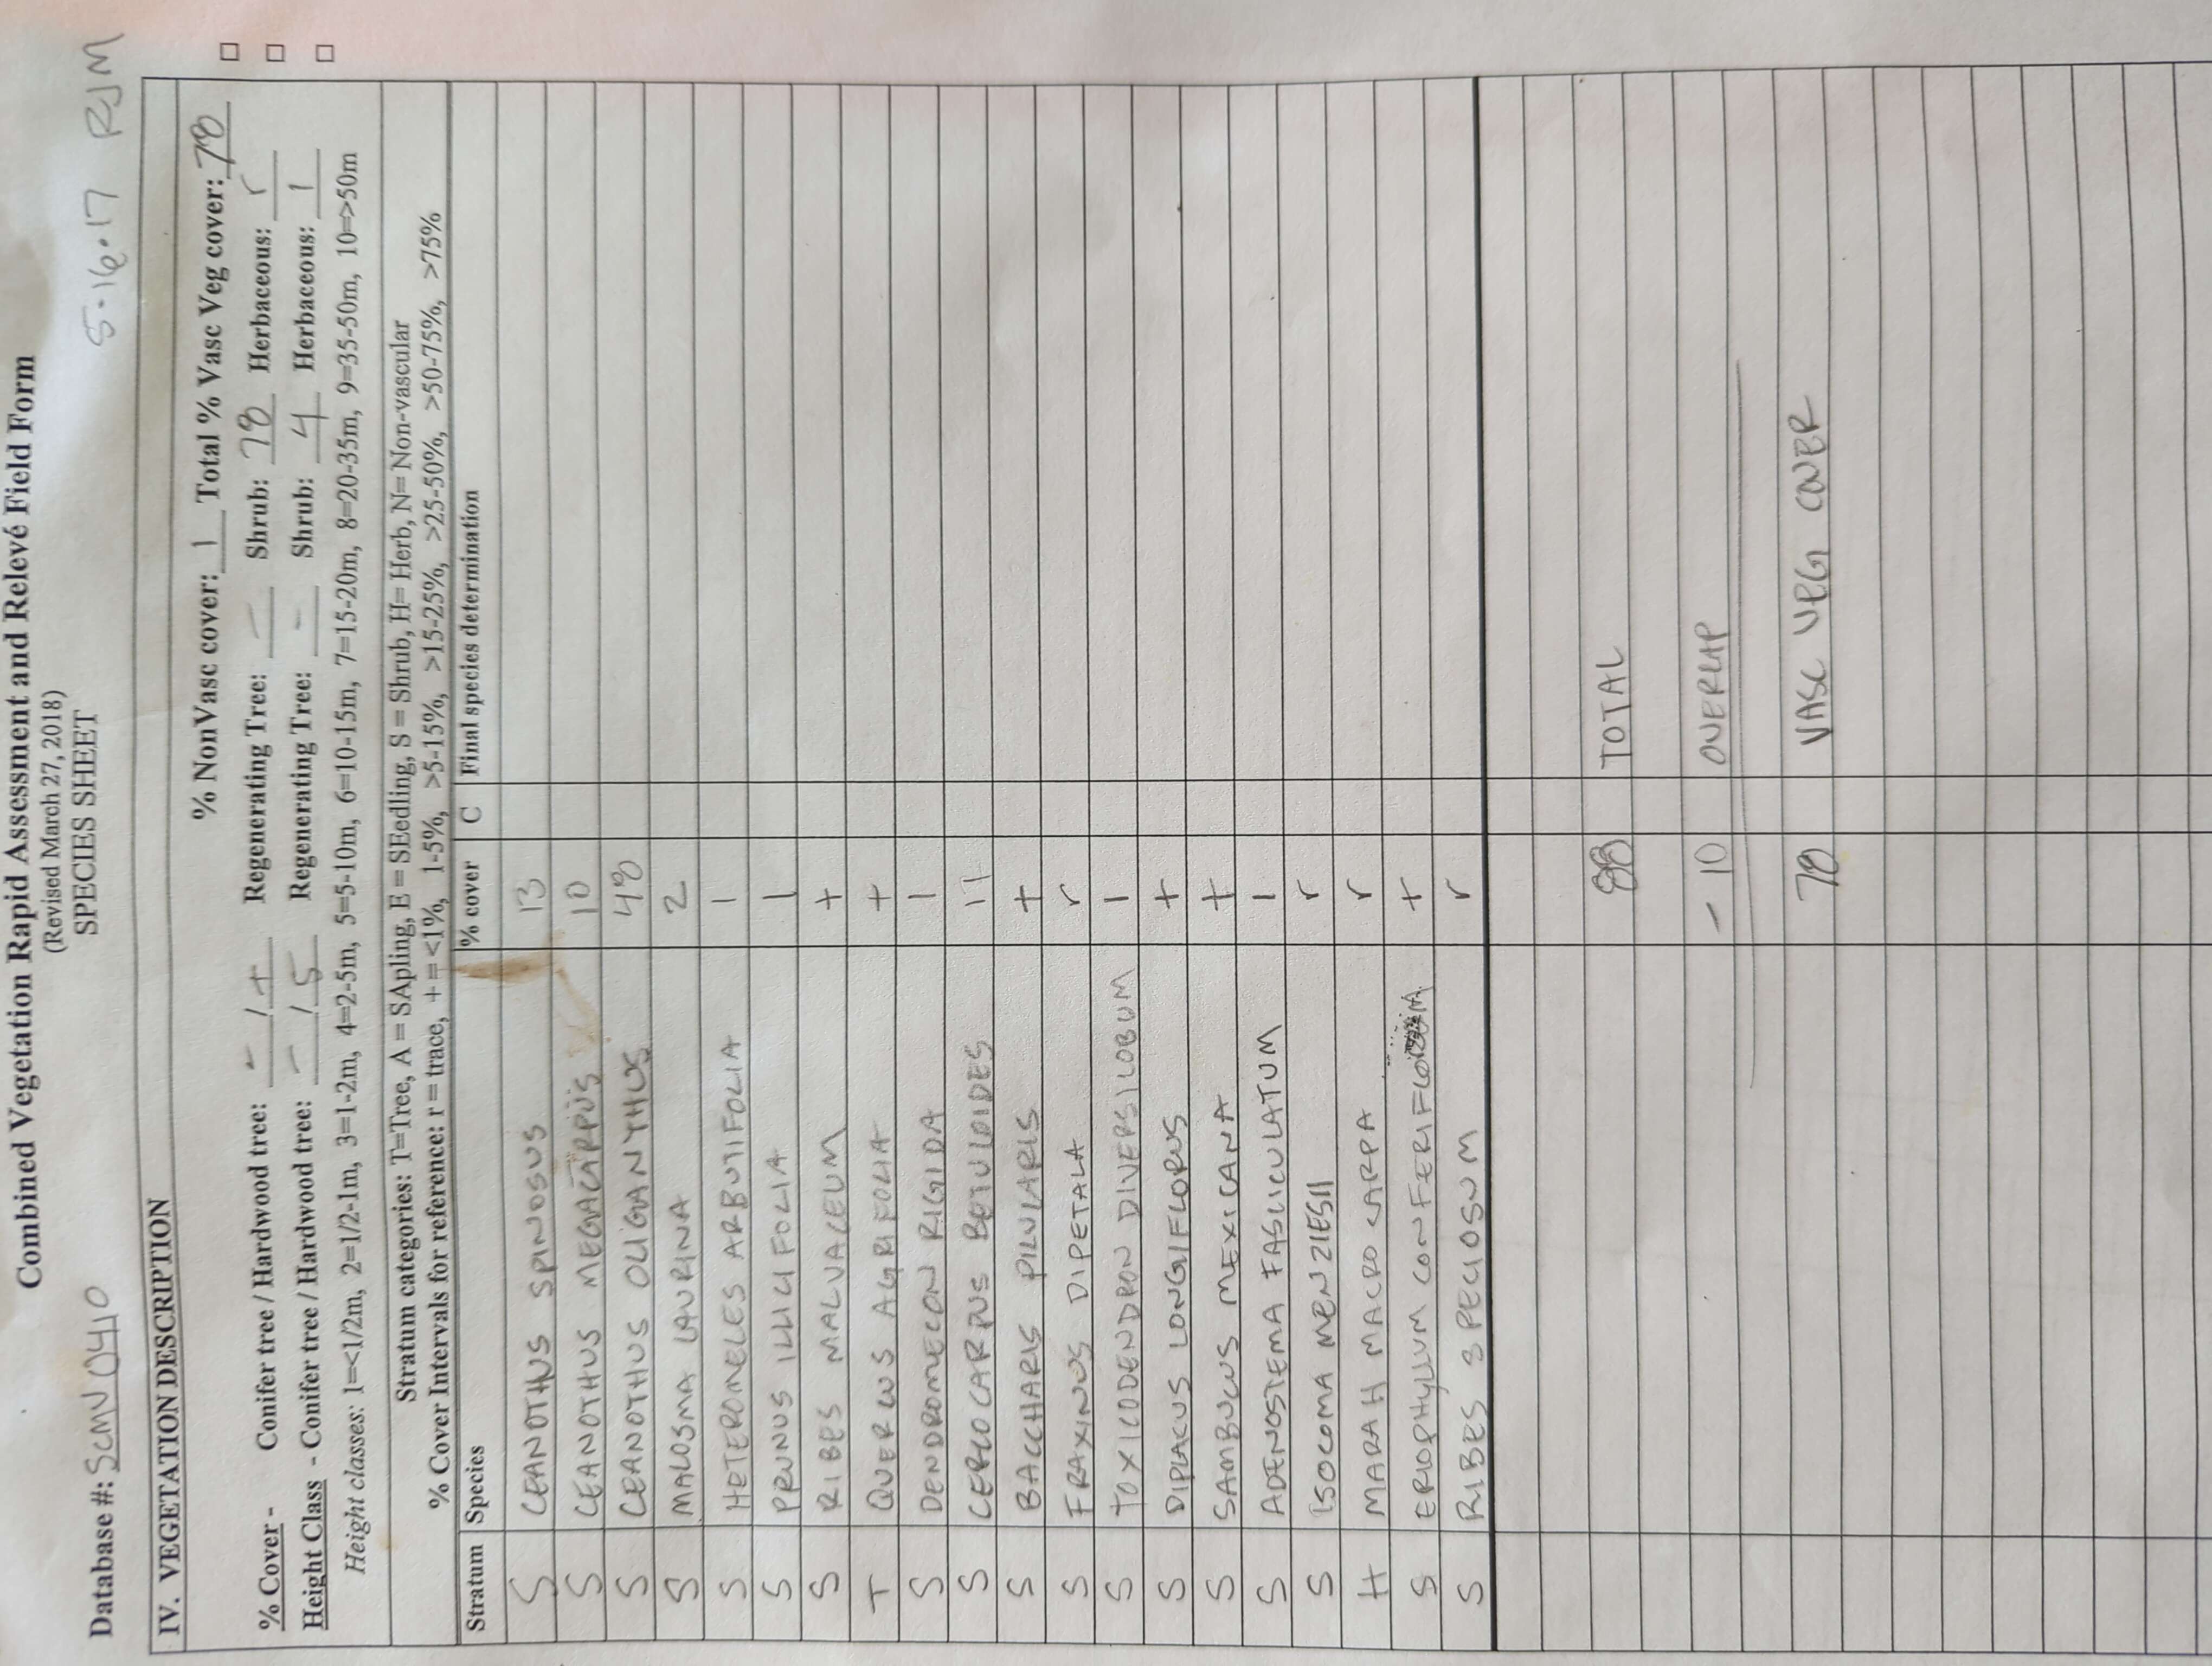 Combined Vegetation Rapid Assessment and Relevé Field Form
(Revised March 27, 2018)
SPECIES SHEET
Database #: SCMV0410
5.16.17 RJM
IV. VEGETATION DESCRIPTION
% NonVasc cover: 1 Total % Vasc Veg cover: 78
% Cover - Conifer tree / Hardwood tree: - / + Regenerating Tree: - Shrub: 78 Herbaceous: r
Height Class - Conifer tree / Hardwood tree: - / 5 Regenerating Tree: - Shrub: 4 Herbaceous: 1
Height classes: 1=<1/2m, 2=1/2-1m, 3=1-2m, 4=2-5m, 5=5-10m, 6=10-15m, 7=15-20m, 8=20-35m, 9=35-50m, 10=>50m
Stratum categories: T=Tree, A = SApling, E = SEedling, S = Shrub, H= Herb, N= Non-vascular
% Cover Intervals for reference: r = trace, + = <1%, 1-5%, >5-15%, >15-25%, >25-50%, >50-75%, >75%
Stratum Species % cover C Final species determination
S CEANOTHUS SPINOSUS 13
S CEANOTHUS MEGACARPUS 10
S CEANOTHUS OLIGANTHUS 48
S MALOSMA LAURINA 2
S HETEROMELES ARBUTIFOLIA 1
S PRUNUS ILLICIFOLIA 1
S RIBES MALVACEUM +
T QUERCUS AGRIFOLIA +
S DENDROMECON RIGIDA 1
S CERCOCARPUS BETULOIDES 11
S BACCHARIS PILULARIS +
S FRAXINUS DIPETALA r
S TOXICODENDRON DIVERSILOBUM 1
S DIPLACUS LONGIFLORUS +
S SAMBUCUS MEXICANA +
S ADENOSTEMA FASCICULATUM 1
S ISOCOMA MENZIESII r
H MARAH MACROCARPA r
S ERIOPHYLLUM +
S RIBES SPECIOSUM r
88 TOTAL
- 10 OVERLAP
78 VASC VEG COVER